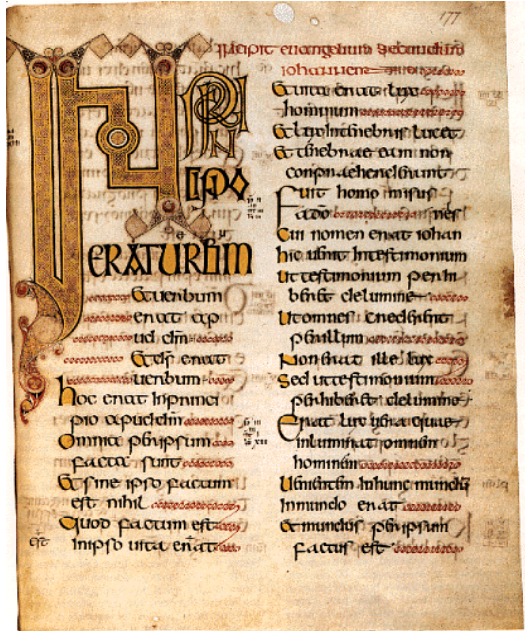 177
Incipit euangelium secundum
iohannen
IN PRIN
CIPIO
e u
ERAT URBUM
Et uerbum
erat ap
ud dm
Et ds erat
uerbum
hoc erat in princi
pio apud dm
Omnia per ipsum
facta sunt
Et sine ipso factum
est nihil
Quod factum est
in ipso uita erat
Et uita erat lux
hominum
Et lux in tenebris lucet
Et tenebrae eam non
conprachenderunt
Fuit homo misus
a do nes
Cui nomen erat iohan
hic uenit in testimonium
Ut testimonium perhi
beret de lumine
Ut omnes crederent
per illum
Non erat ille lux
Sed ut testimonium
perhiberet de lumine
Erat lux uera quae
inluminat omnem
hominem
Uenientem in hunc mundum
In mundo erat
Et mundus per ipsum
factus est